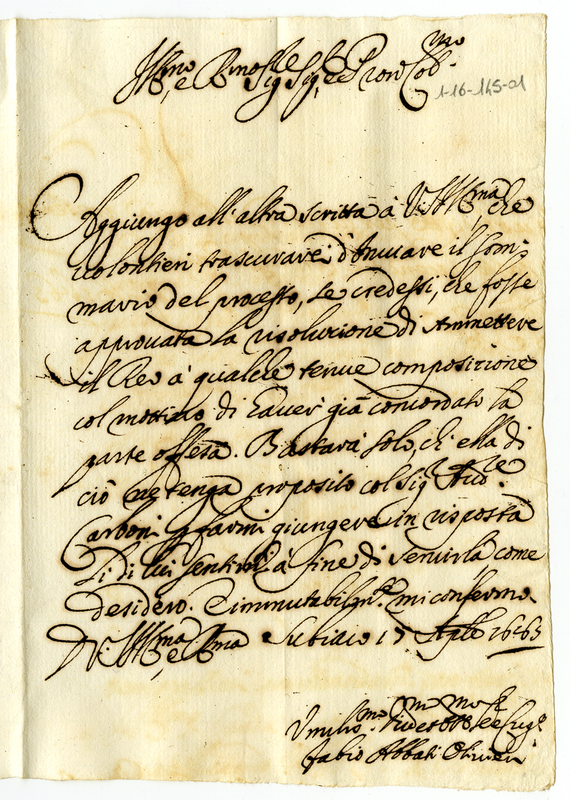 Ill.mo e R.mo Sig.r Sig.r e Pron Col.mo
1-16-145-01
Aggiungo all'altra scritta à V.S. Ill.ma, che
uolontieri trascurarei d'inuiare il som-
mario del processo, se credessi, che fosse
approuata la risoluzione di ammettere
il Reo à qualche tenue composizione
col mottiuo di hauer già concordato la
parte offesa. Bastarà solo, ch'ella di
ciò ne tenga proposito col Sig.r Aud.re
Carboni p farmi giungere in risposta
li di lui sentim.ti à fine di seruirla come
desidero. E immutabilm.te mi confermo
D V.S. Ill.ma e R.ma Subiaco 17 Aple
Vmilis.mo Seru.re
Fabio Abbati Oliuieri